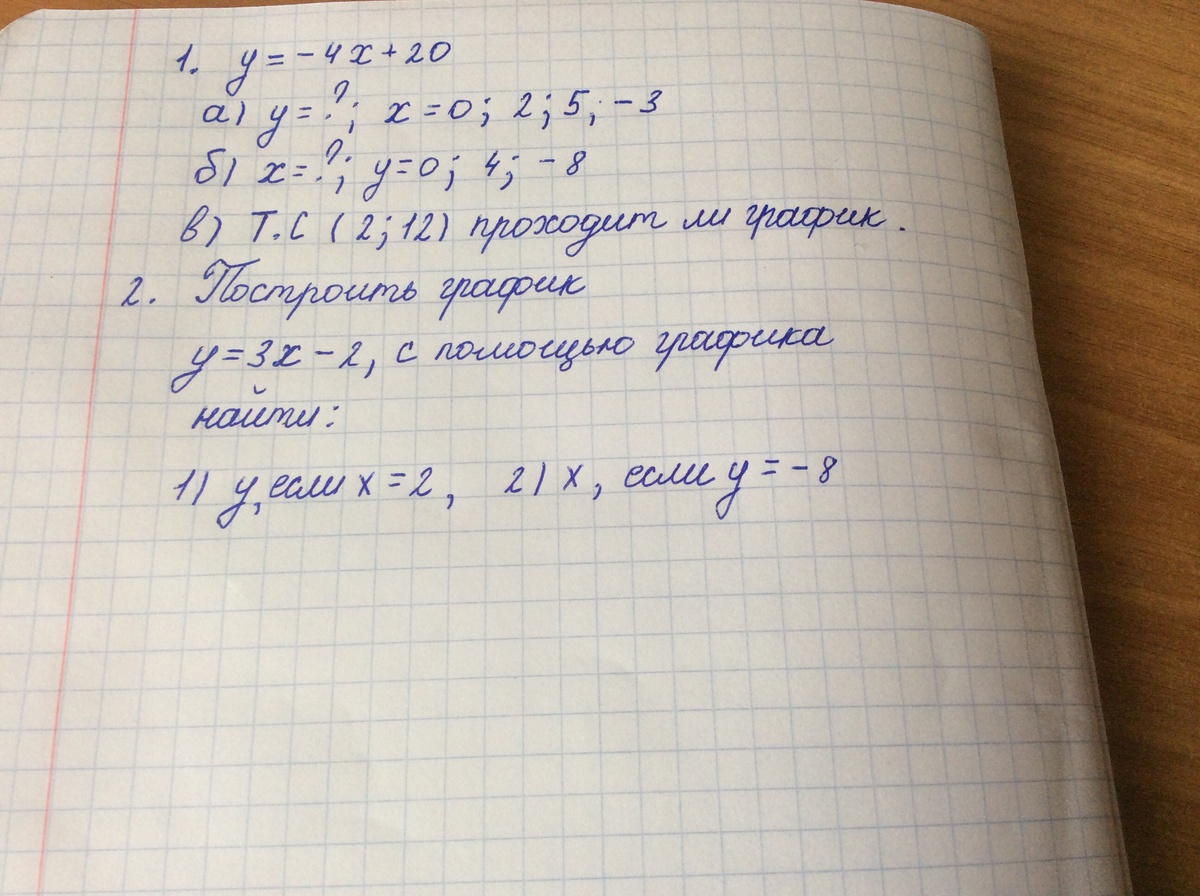 1. y = -4x + 20
а) y = ?; x = 0; 2; 5; -3
б) x = ?; y = 0; 4; -8
в) Т.С (2; 12) проходит ли график.
2. Построить график
y = 3x - 2, с помощью графика
найти:
1) y, если x = 2, 2) x, если y = -8